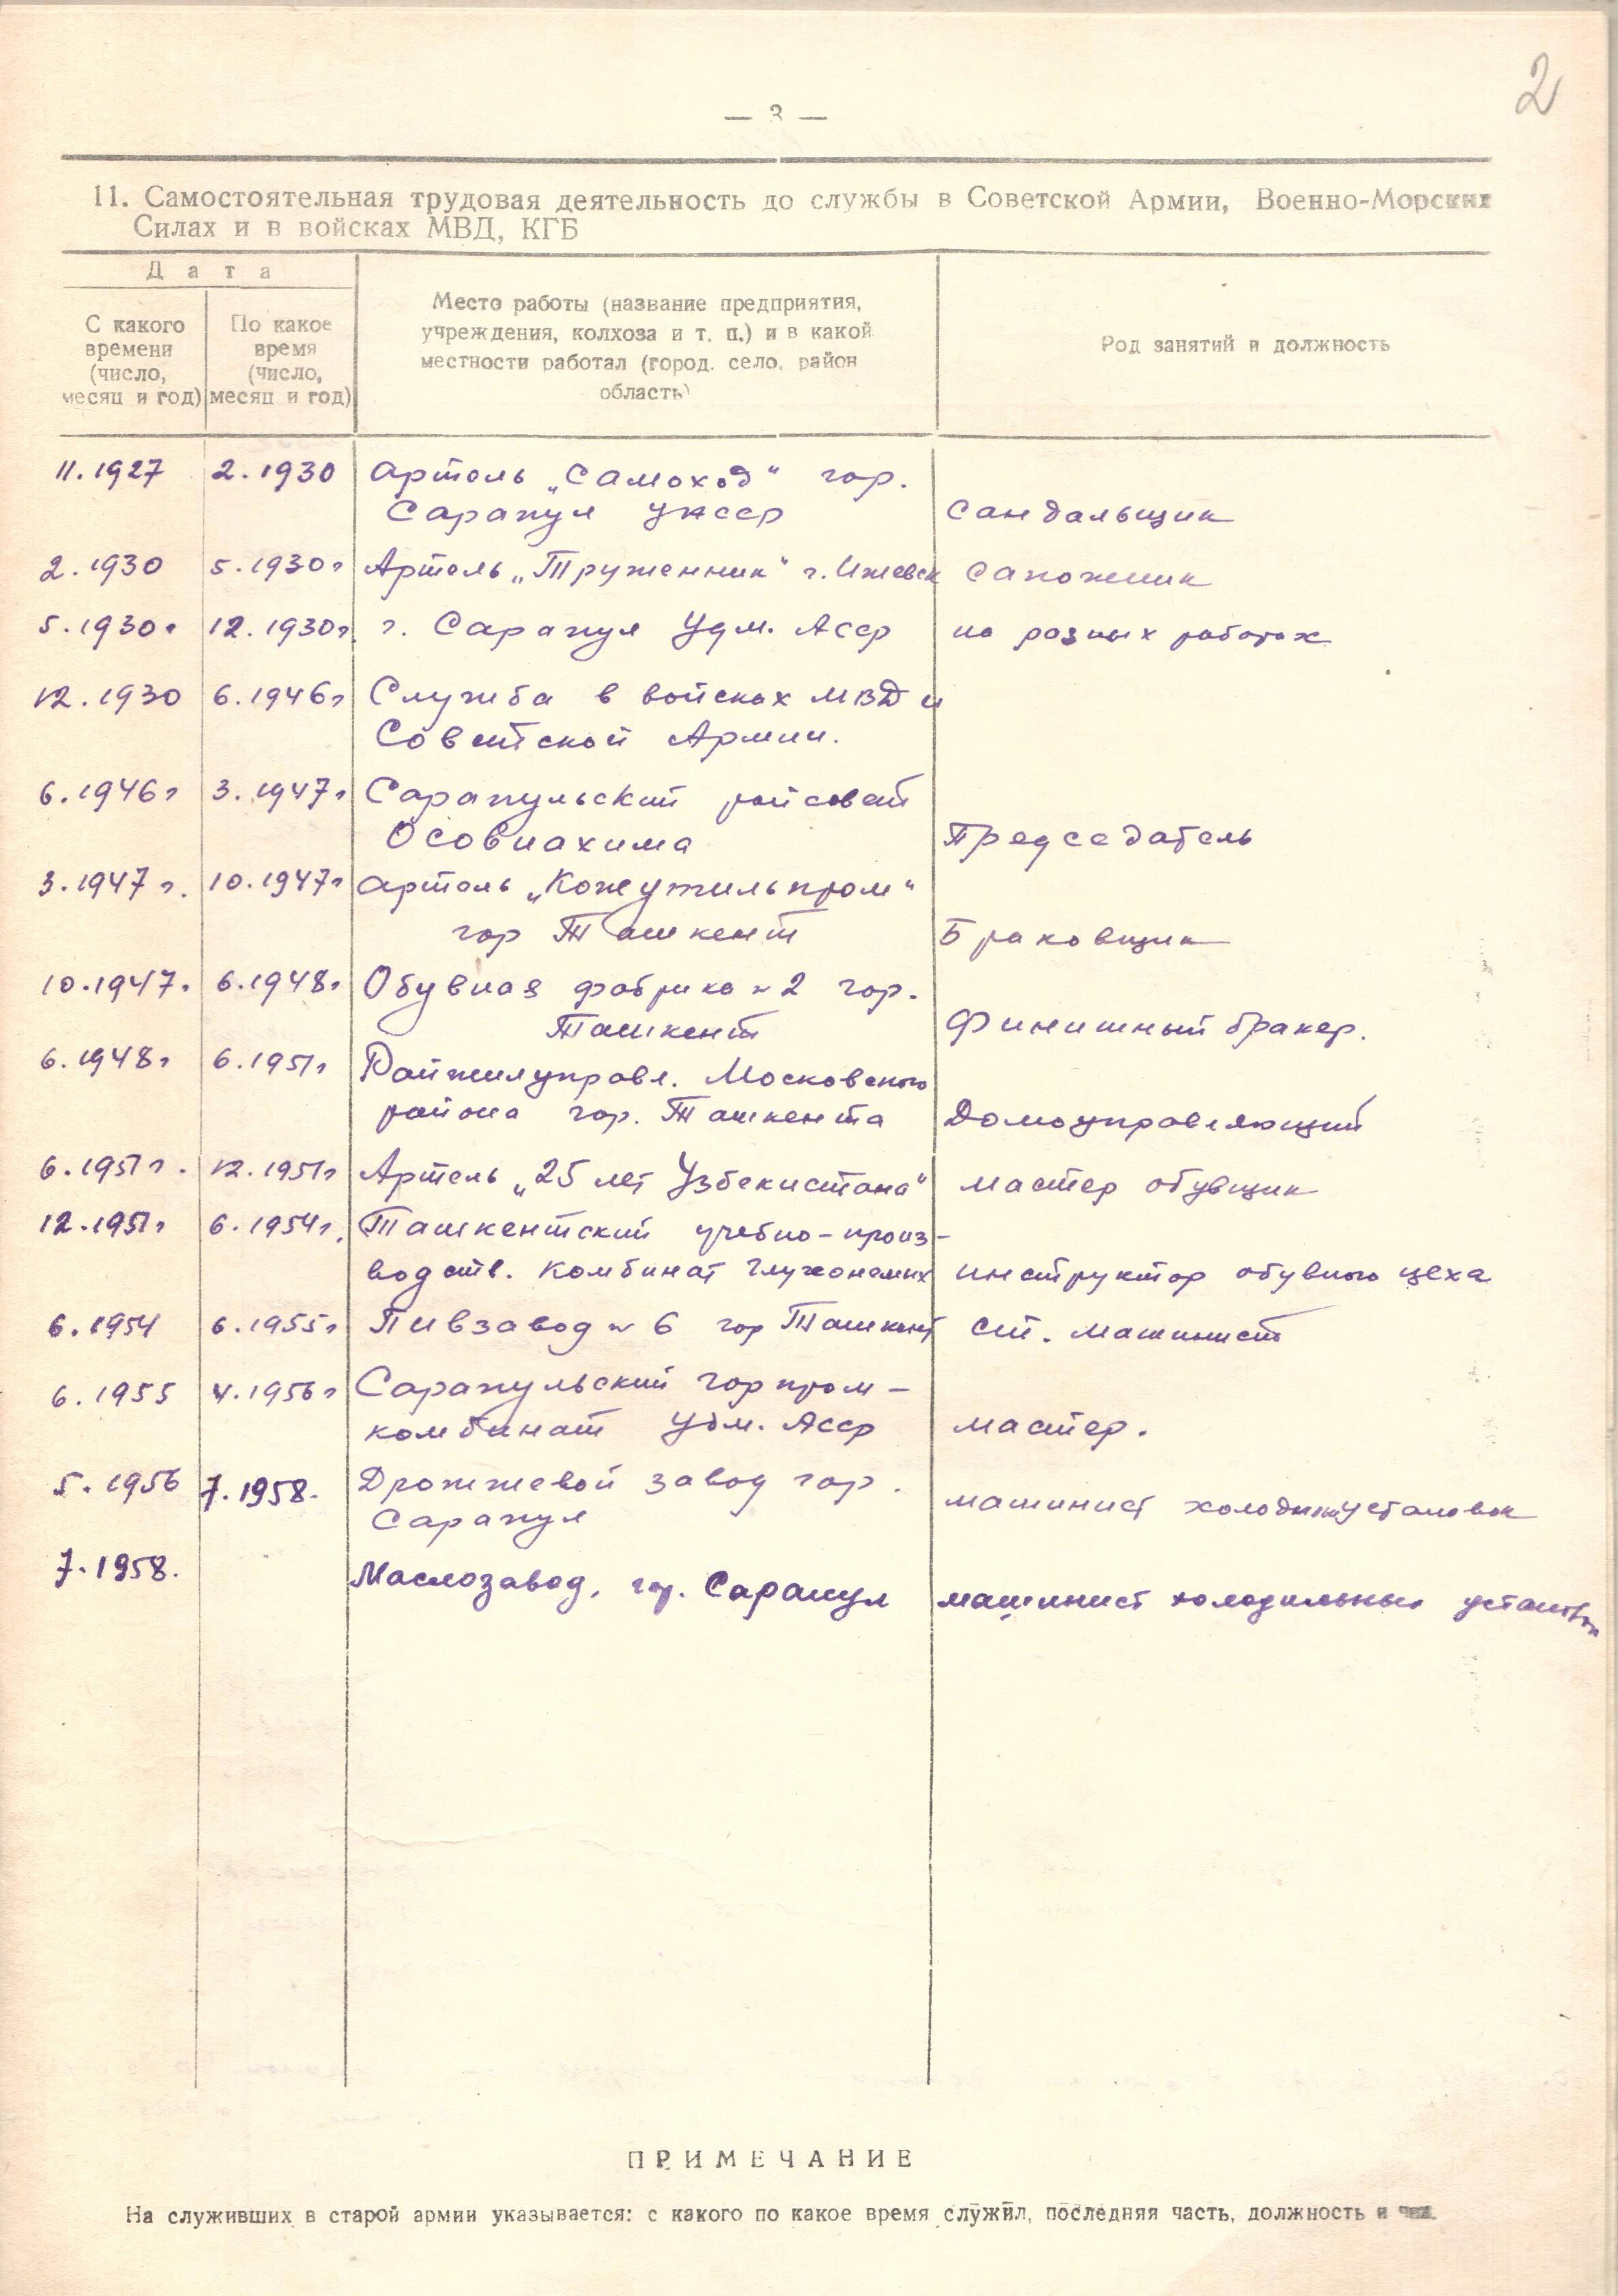 2
— 3 —
11. Самостоятельная трудовая деятельность до службы в Советской Армии, Военно-Морских
Силах и в войсках МВД, КГБ
Дата
С какого
времени
(число,
месяц и год)
По какое
время
(число,
месяц и год)
Место работы (название предприятия,
учреждения, колхоза и т. п.) и в какой
местности работал (город, село, район
область)
Род занятий и должность
11.1927 2.1930 артель „Самоход" гор.
Сарапул УАССР сандальщик
2.1930 5.1930г Артель „Труженник" г. Ижевск сапожник
5.1930г 12.1930г. г. Сарапул Удм. АССР на разных работах
12.1930 6.1946г Служба в войсках МВД и
Советской Армии.
6.1946г 3.1947г Сарапульский райсовет
Осовиахима Председатель
3.1947г. 10.1947г артель „Кожутильпром"
гор Ташкент Браковщик
10.1947г 6.1948г Обувная фабрика №2 гор.
Ташкент Финишный бракер.
6.1948г 6.1951г Райжилуправл. Московского
района гор. Ташкента Домоуправляющий
6.1951г. 12.1951г Артель „25 лет Узбекистана" мастер обувщик
12.1951г 6.1954г. Ташкентский учебно-произ-
водств. комбинат глухонемых инструктор обувного цеха
6.1954 6.1955г Пивзавод № 6 гор Ташкент ст. машинист
6.1955 4.1956г Сарапульский горпром-
комбинат Удм. АССР мастер.
5.1956 7.1958. Дрожжевой завод гор.
Сарапул машинист установок
7.1958. Маслозавод, гор. Сарапул машинист холодильных установок
ПРИМЕЧАНИЕ
На служивших в старой армии указывается: с какого по какое время служил, последняя часть, должность и чин.